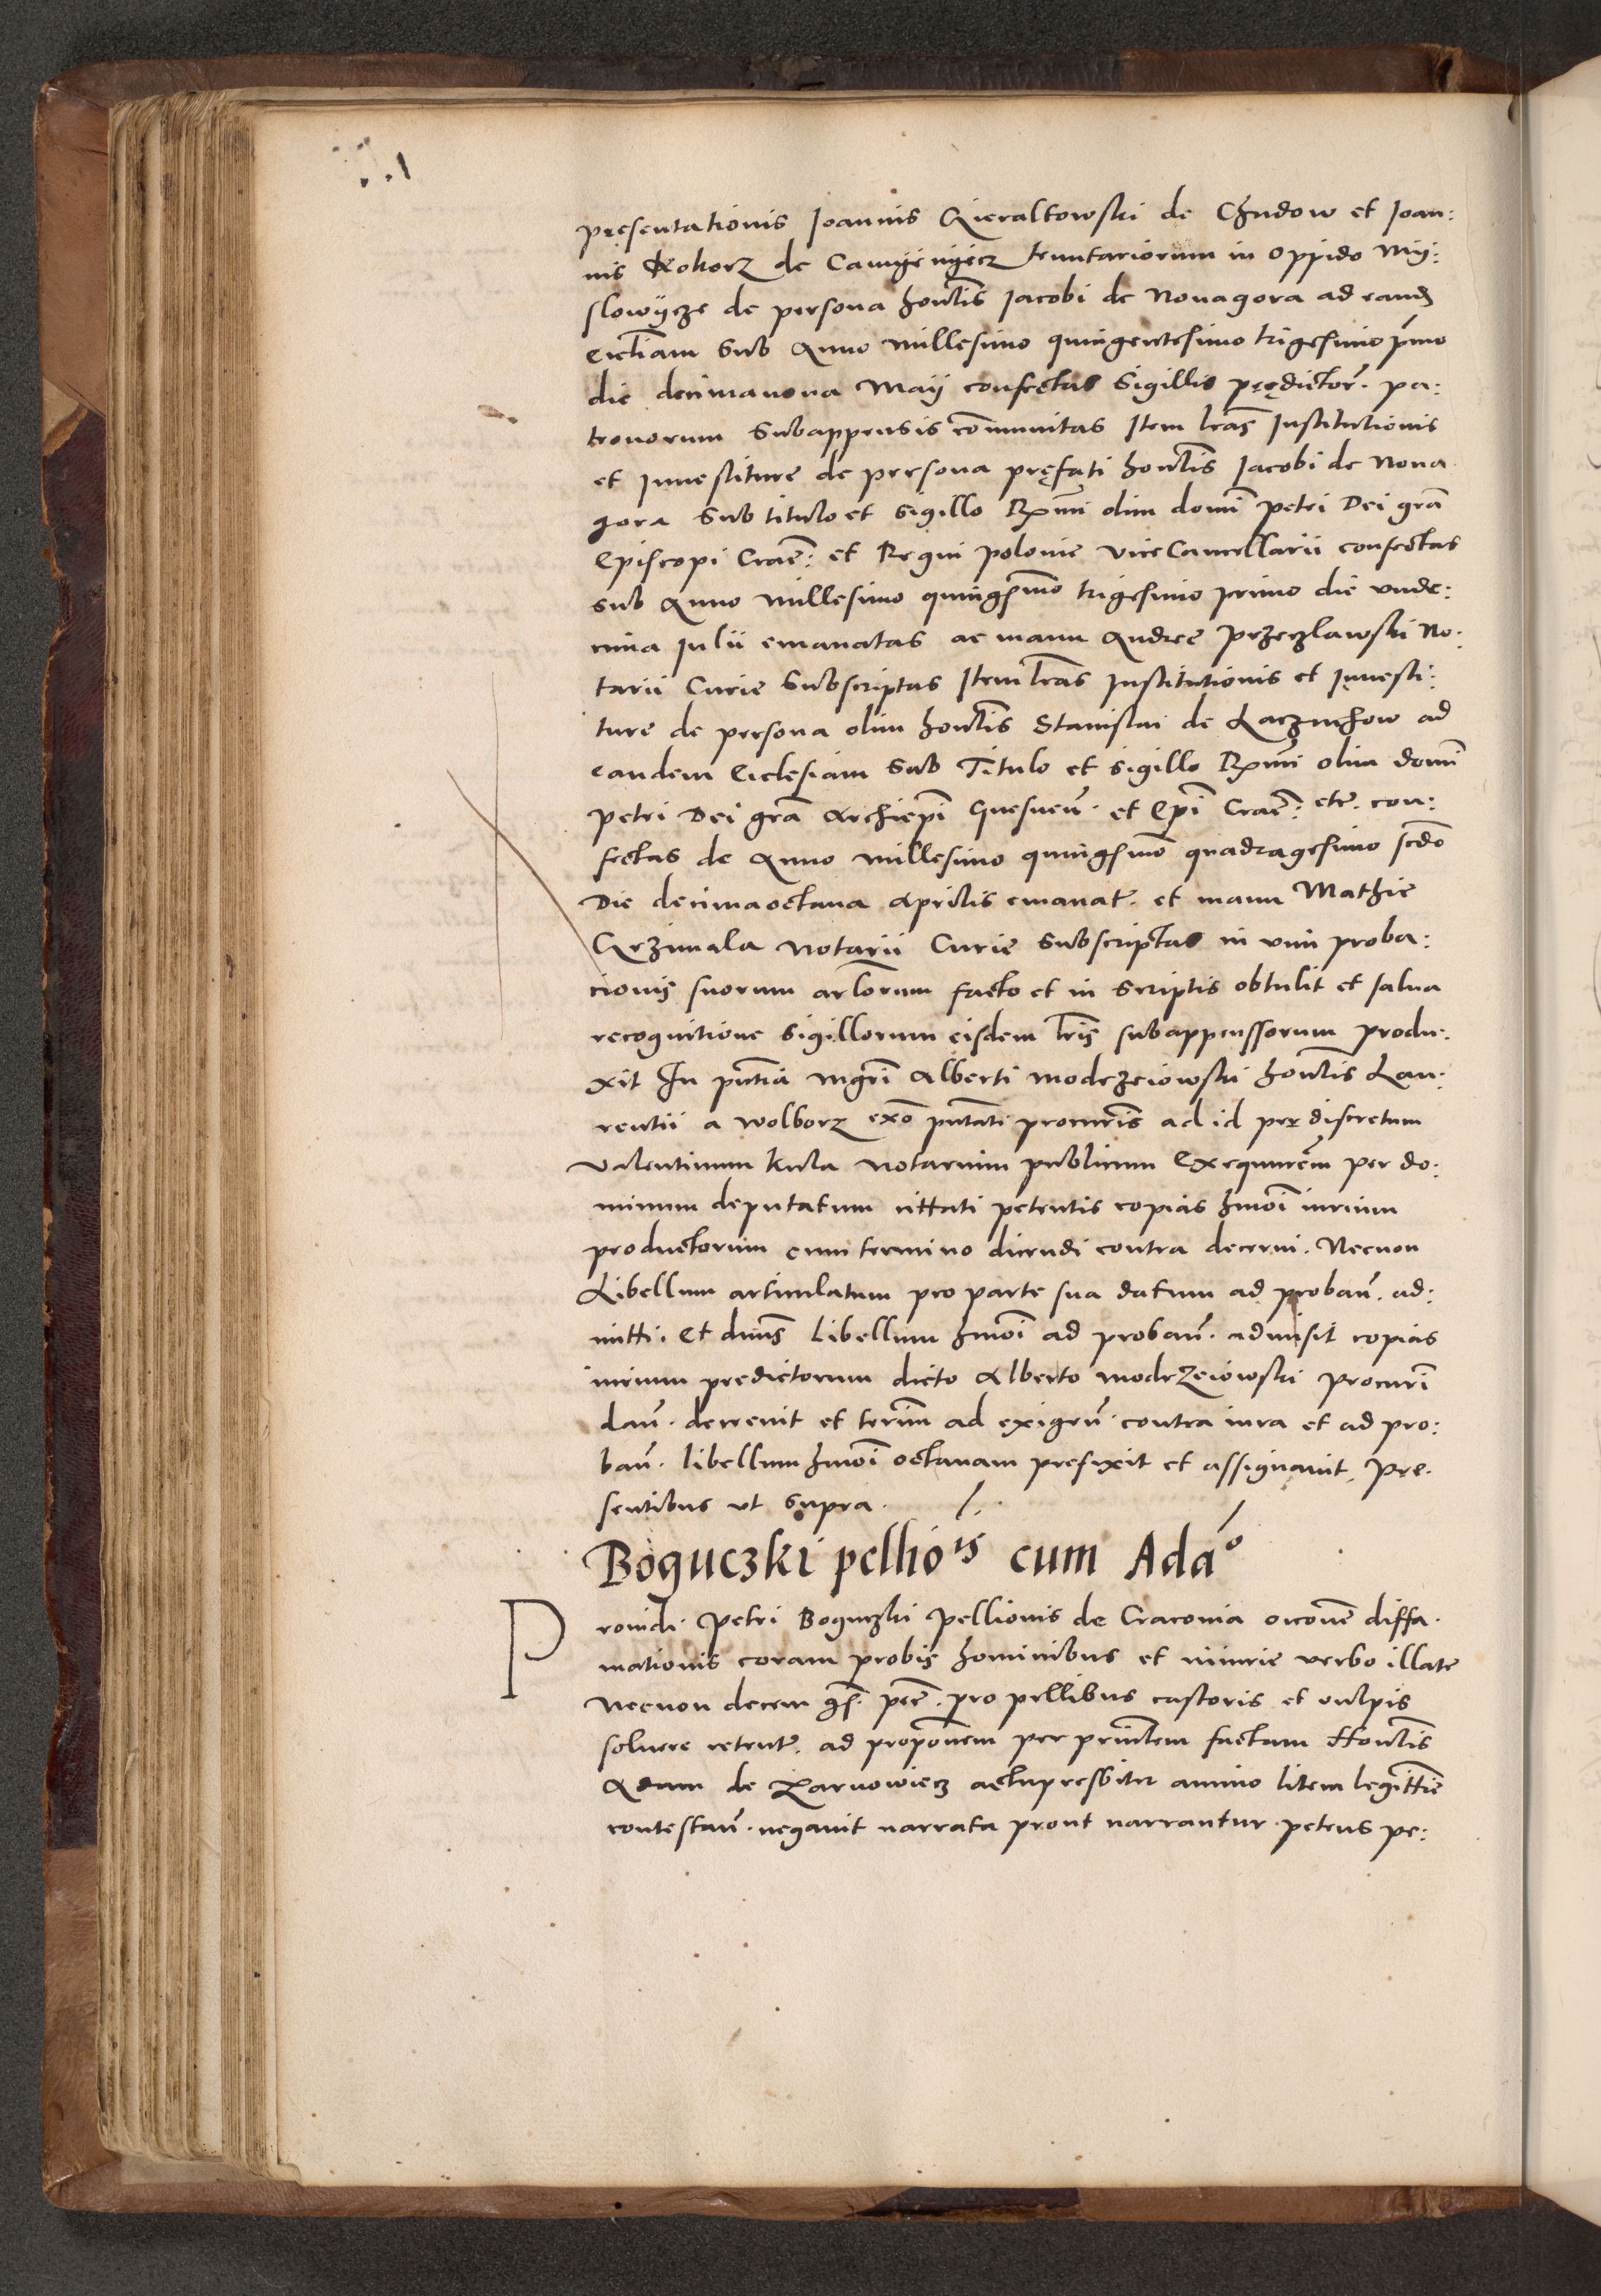 pręsentationis Joannis Gieraltowski de Chudow et Joan:
nis Kokorz de Camyenyecz tenutariorum in oppido Mÿ:
slowÿcze de persona hon̄lis Jacobi de Novagora ad eand
Ecc̄liam Sub Anno Millesimo quingentesimo trigesimo p̄mo
die decimanona Maÿ confectas Sigillis prędictor̄. pa:
tronorum Subappensis com̄unitas Item l̄ras Institutionis
et Inuestiture de persona pręfati hon̄lis Jacobi de Noua
gora Sub titulo et Sigillo R̄xmi olim domī petri Dei grā
Episcopi Crac̄: et Regni polonie ViceCancellarii confectas
Sub Anno Millesimo quingsm̄o trigesimo primo die vnde:
cima Julii emanatas ac manu Andree Przeczlawski No:
tarii Curie Subscriptas Item l̄ras Institutionis et Inuesti:
ture de persona olim hon̄lis Stanislai de Laczuchow ad
eandem Ecclesiam Sub Titulo et Sigillo R̄xmi olim domī
petri Dei grā Archiepī Gnesnen̄. et Epī Crac̄: etc̄. con:
fectas de Anno Millesimo quingsmō quadragesimo scdō
Die decimaoctaua Aprilis emanat̄. et manu Mathie
Grzimala Notarii Curie Subscriptas in vim proba:
cionis suorum ar̄lorum facto et in Scriptis obtulit et salua
recognitione Sigillorum eisdem l̄ris subappenssorum produ:
xit In pn̄tia mgrī Alberti modrzeiowski hon̄lis Lau:
rentii a Wolborz exō pn̄tati procuris̄ ad id per discretum
Valentinum Kula Notarium publicum Exequurēm per do:
minum deputatum cittati petentis copias hmōi iurium
productorum cum termino dicendi contra decerni. Necnon
Libellum articulatum pro parte sua datum ad proban̄. ad:
mitti. Et dnus̄ Libellum hmōi ad proban̄. admisit copias
iurium predictorum dicto Alberto modrzeiowski Procurī
dan̄. decreuit et ter̄im ad exigen̄. contra iura et ad pro:
ban̄. libellum hmōi octauam prefixit et assignauit. Pre.
sentibus vt Supra.
Boguczski pellio^is cum Ada^o
Prouidi Petri Boguczski Pellionis de Cracouia occōne diffa.
mationis coram probis hominibus et iniurie verbo illate
Necnon decem gs̄. pec̄. pro pellibus castoris et vulpis
soluere retent̄. ad propōnem per prin̄lem factam Hon̄lis
Adam de Zarnowiecz actupresbiter animo litem legittīe
contestan̄. negauit narrata prout narrantur. petens pe: